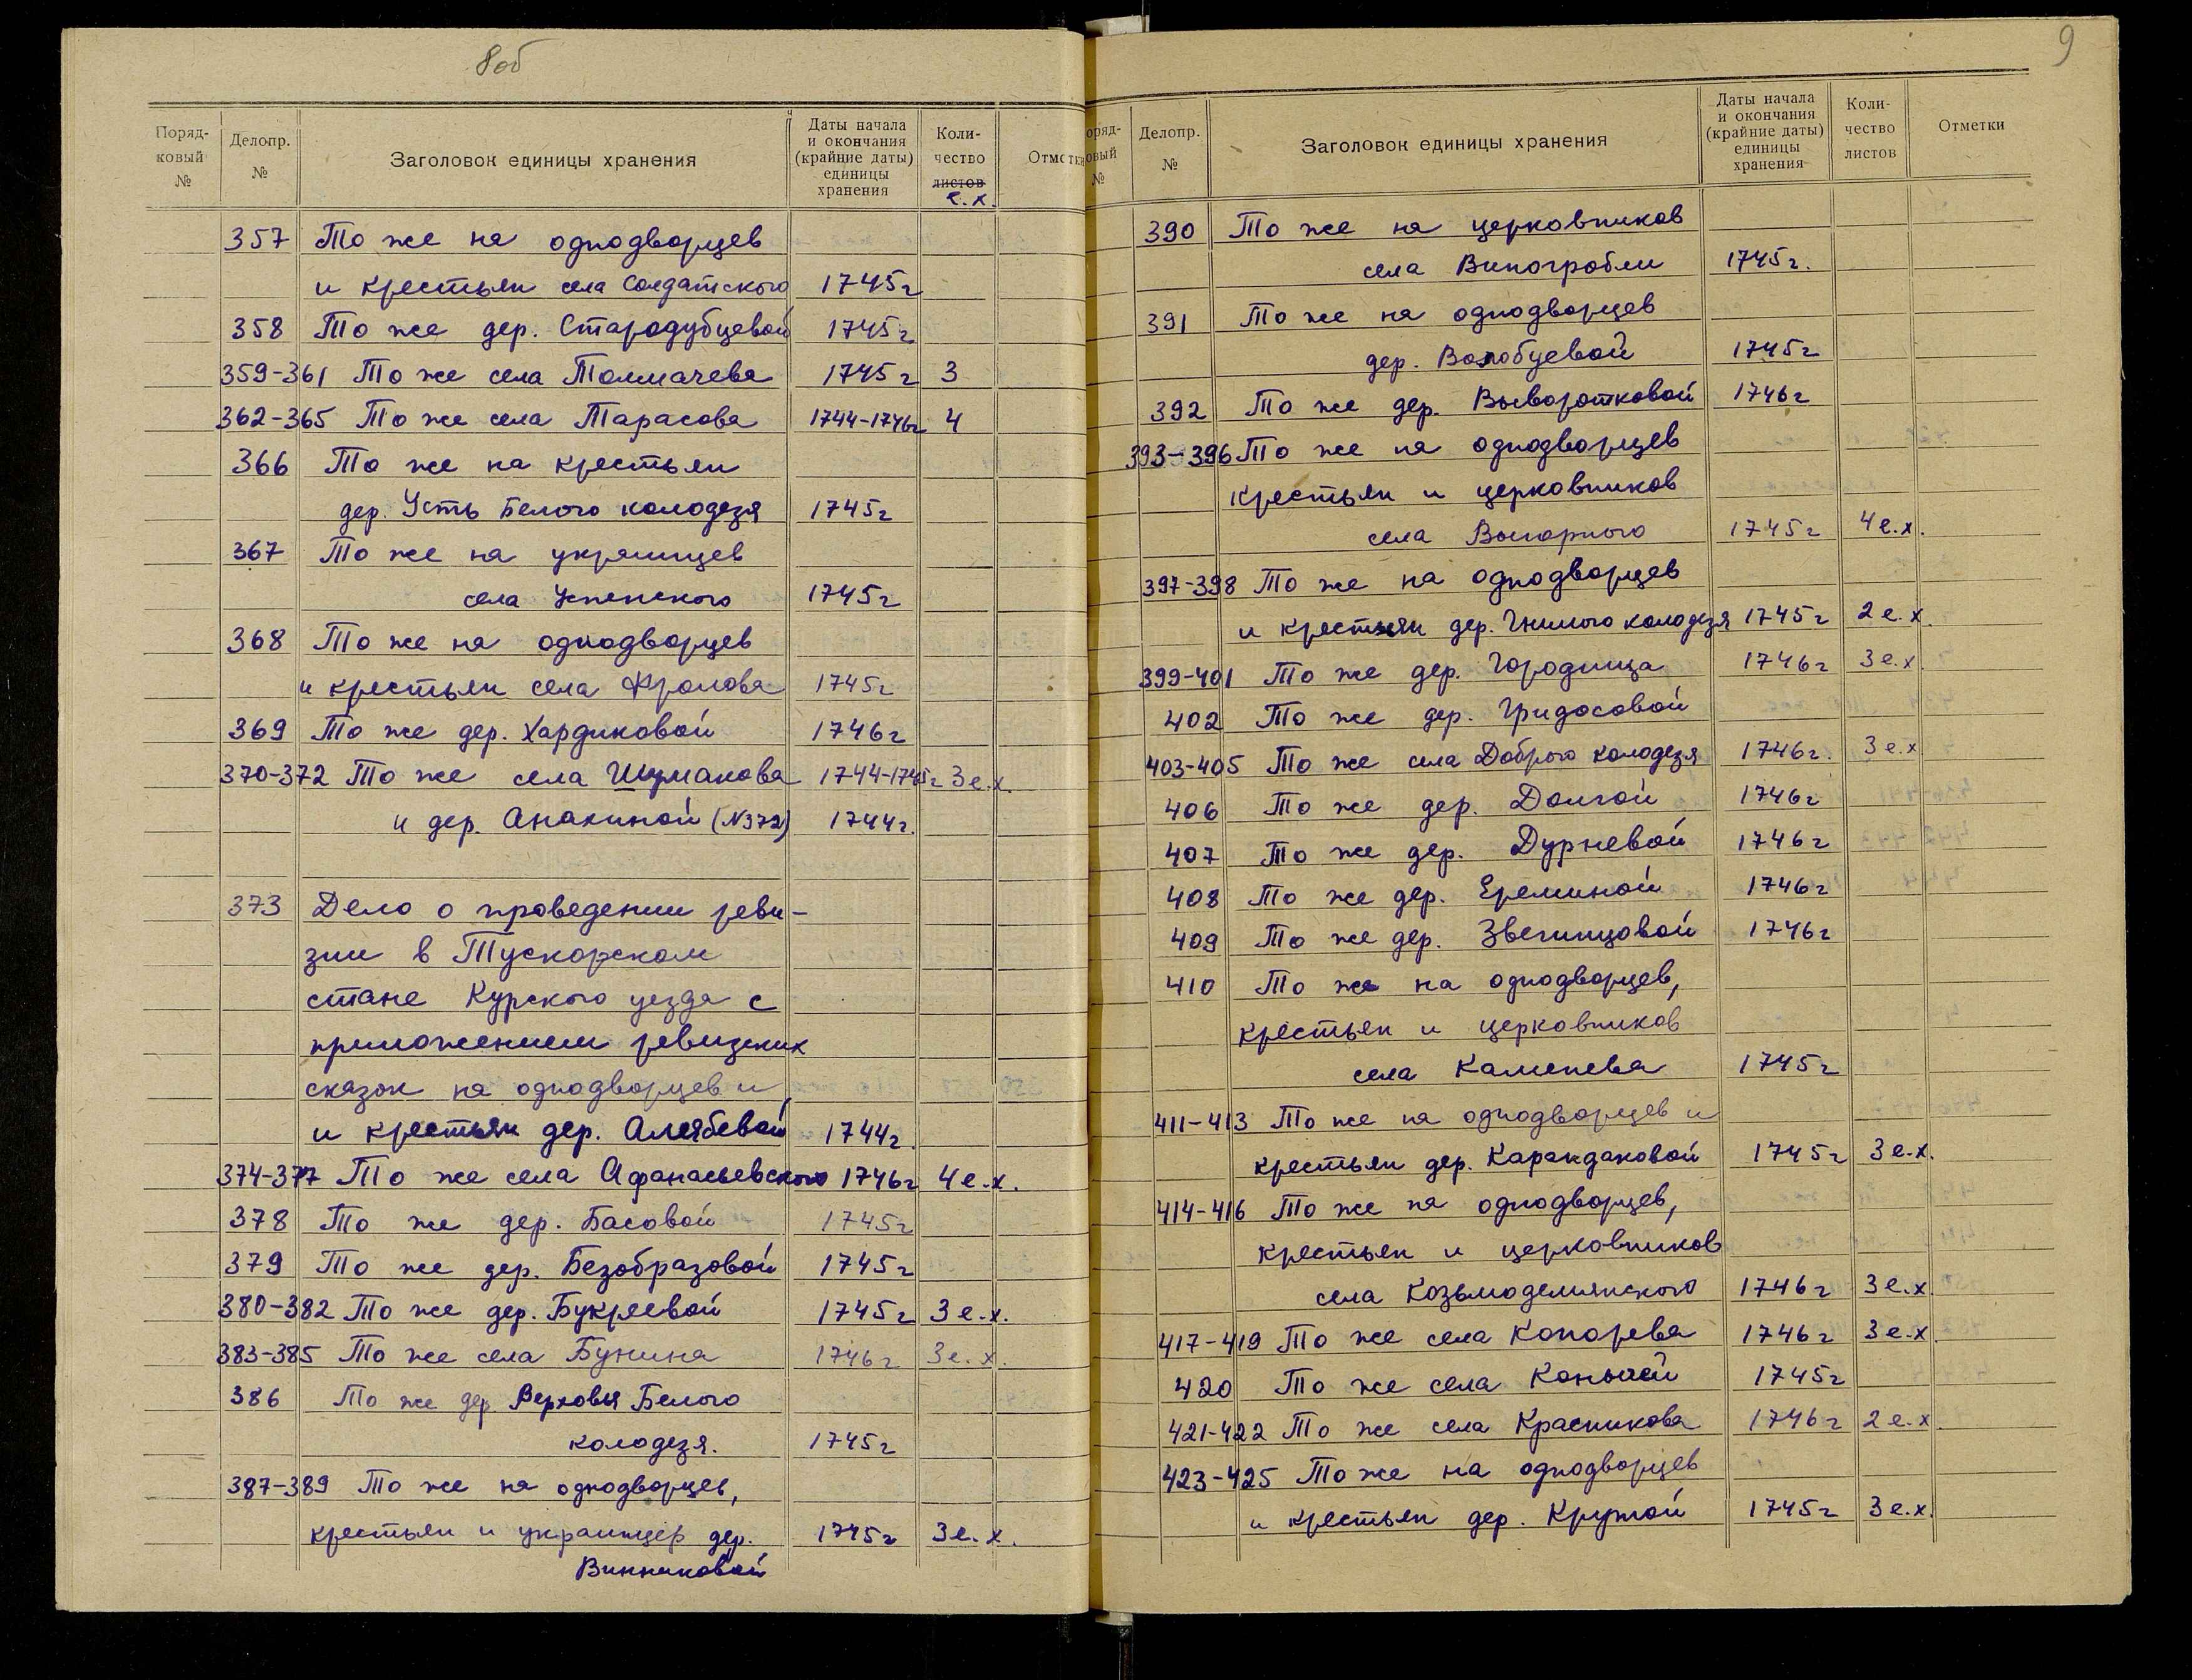 8об
Поряд-
ковый
№
Делопр.
№
Заголовок единицы хранения
Даты начала
и окончания
(крайние даты)
единицы
хранения
Коли-
чество
листов
е.х.
Отметки
357 То же на однодворцев
и крестьян села Солдатского 1745г
358 То же дер. Стародубцевой 1745г
359-361 То же села Толмачева 1745г 3
362-365 То же села Тарасова 1744-1746г 4
366 То же на крестьян
дер. Усть Белого колодезя 1745г
367 То же на украинцев
села Успенского 1745г
368 То же на однодворцев
и крестьян села Фролова 1745г
369 То же дер. Хардиковой 1746г
370-372 То же села Шумакова 1744-1745г 3е.х.
и дер. Анахиной (N372) 1744г.
373 Дело о проведении реви-
зии в Тускорском
стане Курского уезда с
приложением ревизских
сказок на однодворцев и
и крестьян дер. Алябевой 1744г.
374-377 То же села Афанасьевского 1746г 4е.х.
378 То же дер. Басовой 1745г
379 То же дер. Безобразовой 1745г
380-382 То же дер. Букреевой 1745г 3е.х.
383-385 То же села Бунина 1746г 3е.х.
386 То же дер Верховья Белого
колодезя. 1745г
387-389 То же на однодворцев,
крестьян и украинцев дер. 1745г 3е.х.
Винниковой
9
оряд-
овый
№
Делопр.
№
Заголовок единицы хранения
Даты начала
и окончания
(крайние даты)
единицы
хранения
Коли-
чество
листов
Отметки
390 То же на церковников
села Виногробли 1745г.
391 То же на однодворцев
дер. Воробуевой 1745г
392 То же дер. Выворотковой 1746г
393-396 То же на однодворцев
крестьян и церковников
села Выгорного 1745г 4е.х.
397-398 То же на однодворцев
и крестьян дер. Гнилого колодезя 1745г 2е.х.
399-401 То же дер. Городища 1746г 3е.х
402 То же дер. Гридосовой
403-405 То же села Доброго колодезя 1746г. 3е.х
406 То же дер. Долгой 1746г
407 То же дер. Дурневой 1746г
408 То же дер. Ереминой 1746г
409 То же дер. Звегинцовой 1746г
410 То же на однодворцев,
крестьян и церковников
села Каменева 1745г
411-413 То же на однодворцев и
крестьян дер. Карандаковой 1745г 3е.х.
414-416 То же на однодворцев,
крестьян и церковников
села Козьмодемянского 1746г 3е.х
417-419 То же села Конорева 1746г 3е.х.
420 То же села 1745г
421-422 То же села Красникова 1746г 2е.х.
423-425 То же на однодворцев
и крестьян дер. Крутой 1745г 3е.х.